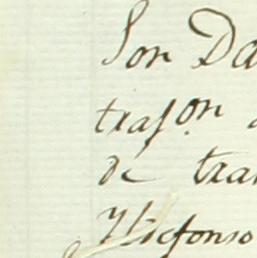 Son Da
tras.on
de tra
Yldefonso